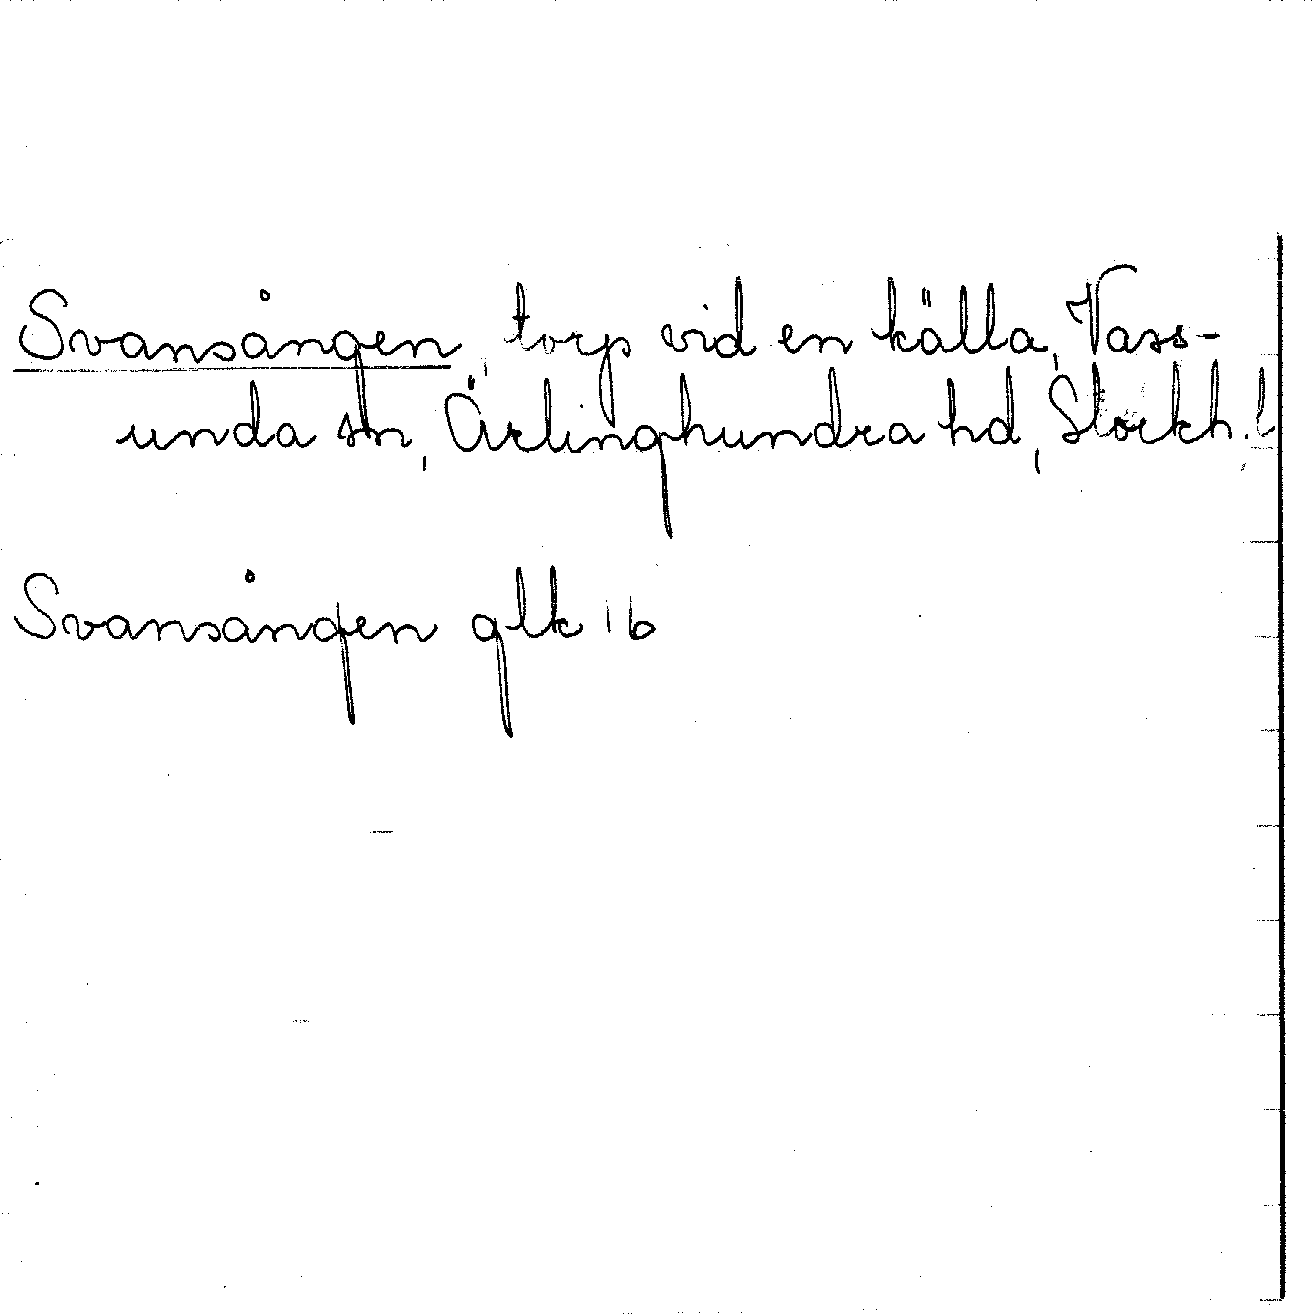 Svansången, torp vid en källa, Vass-
unda sn, Ärlinghundra hd, Stockh. l
Svansången glk 16